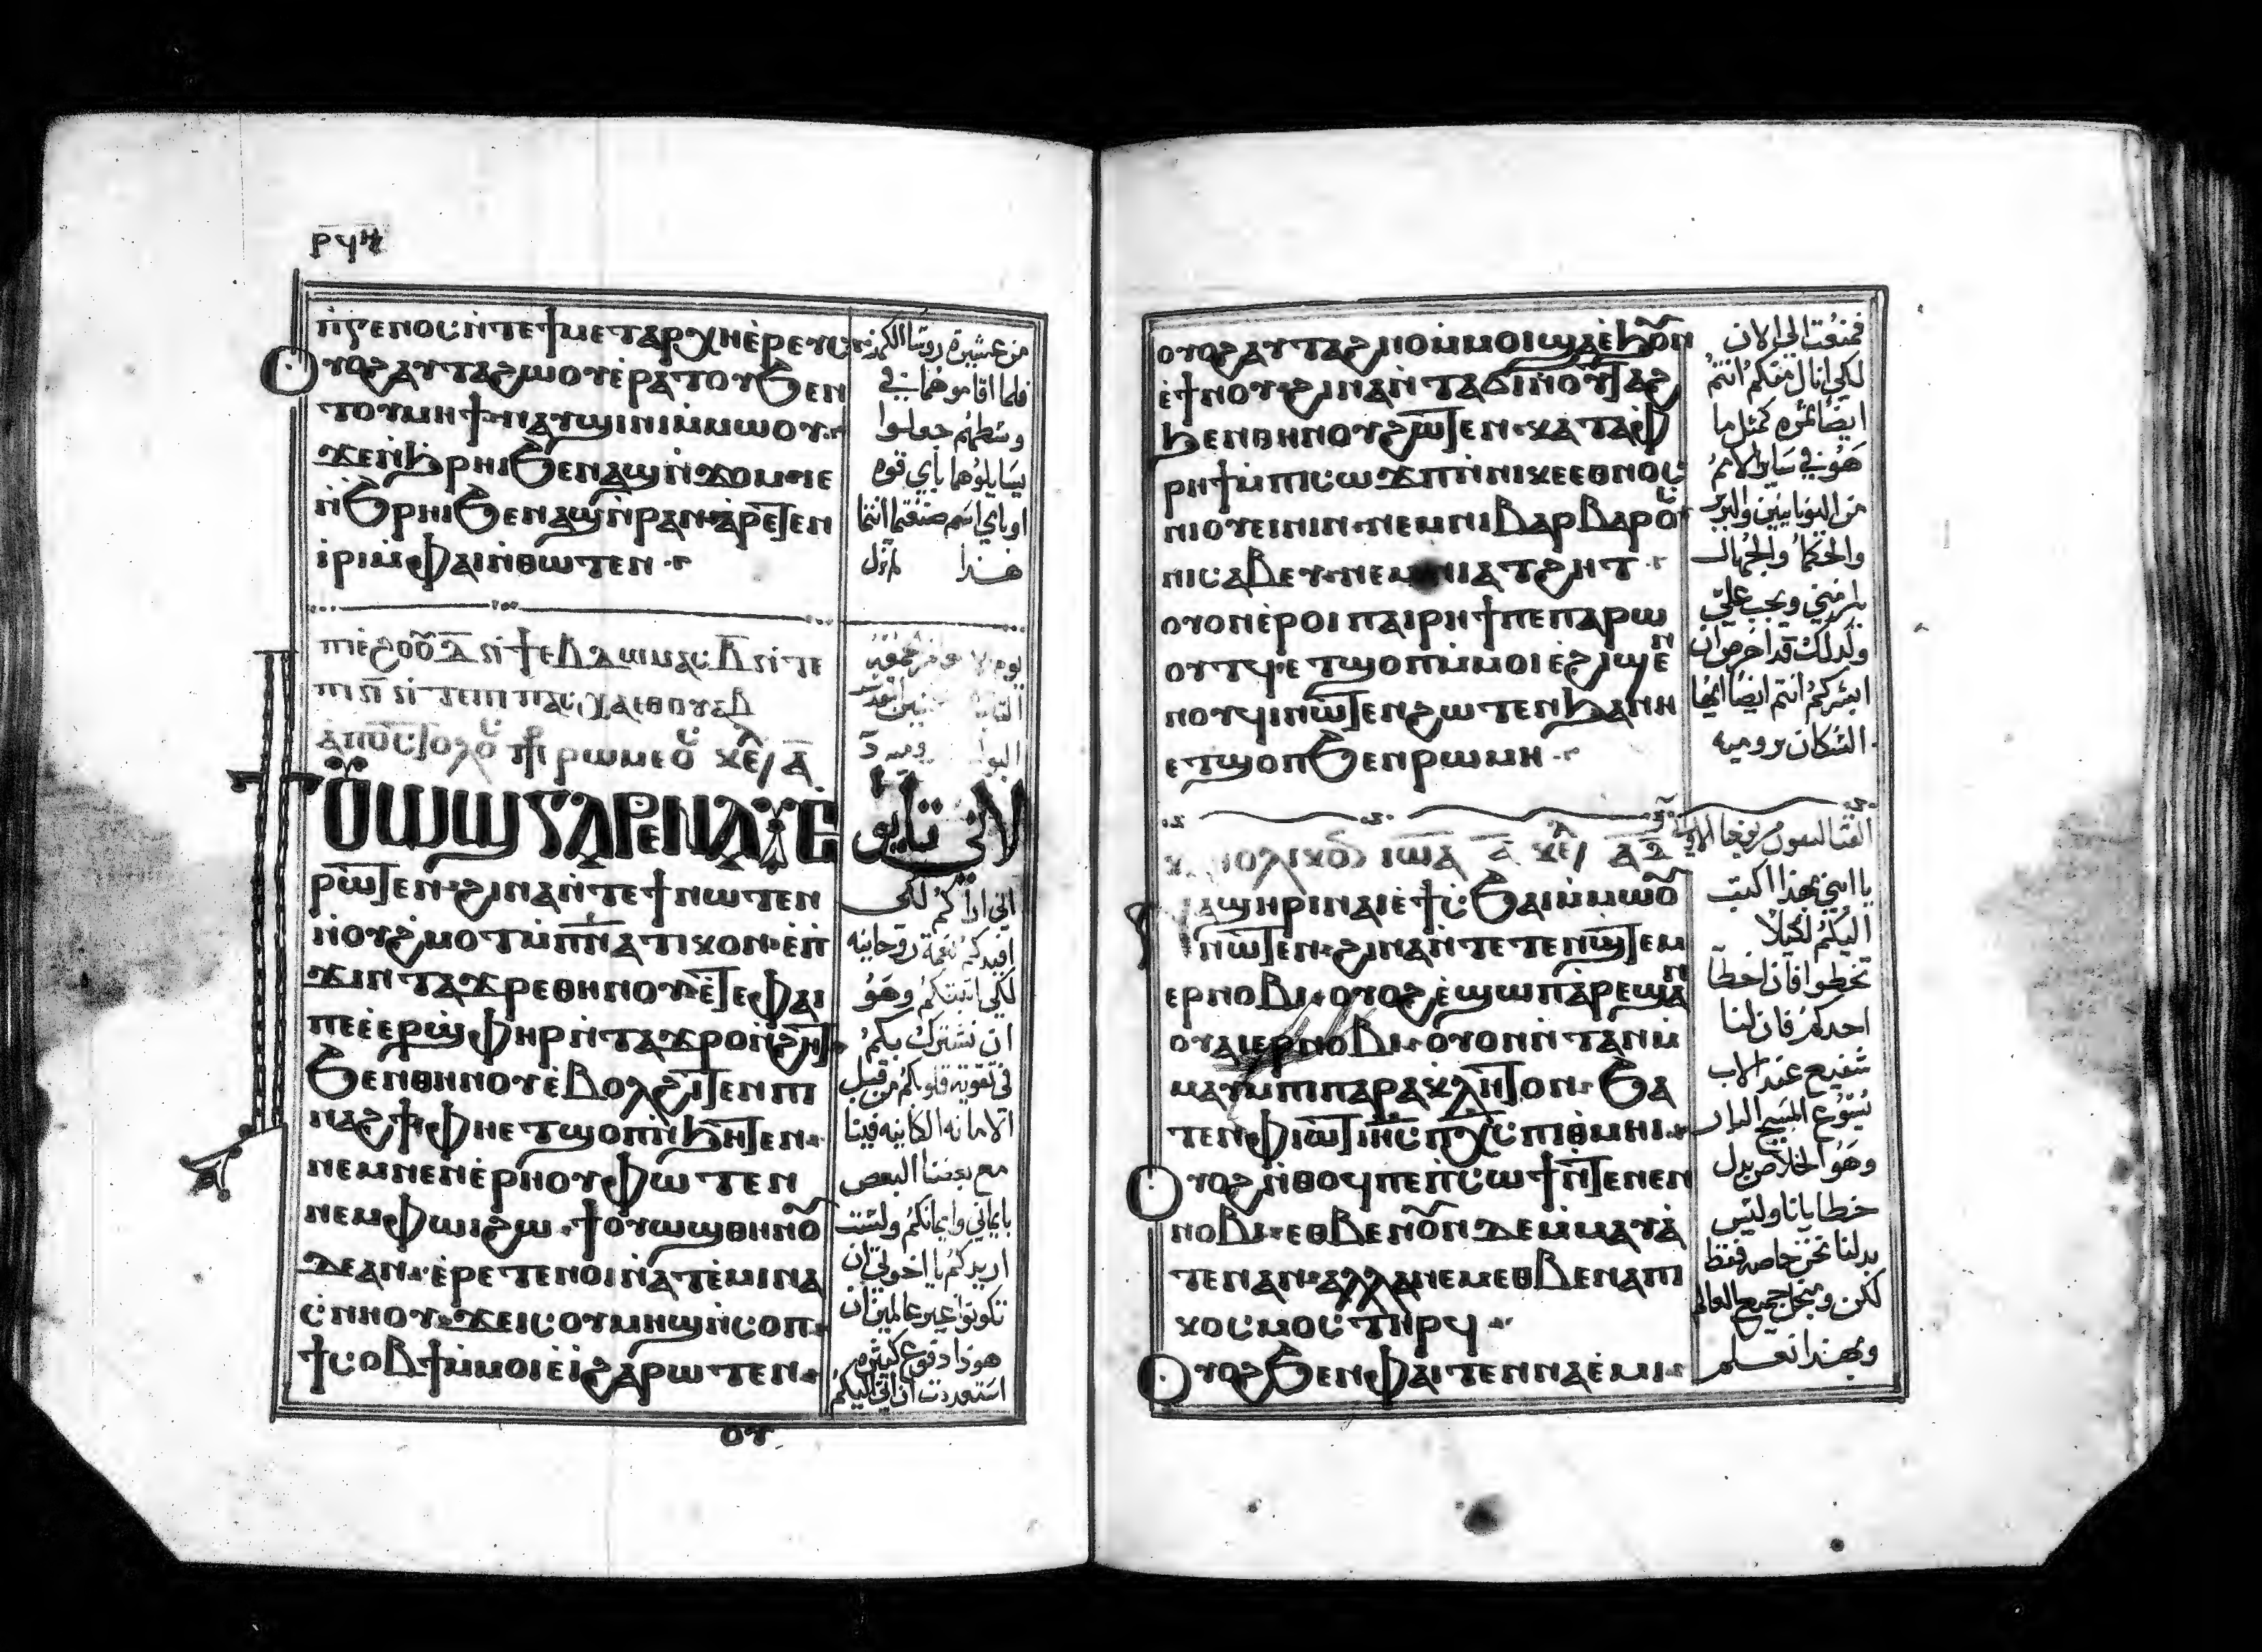 ⲣϥⲏ
ⲛ̀ⲅⲉⲛⲟⲥ ⲛ̀ⲧⲉ ϯⲙⲉⲧⲁⲣⲭⲏⲉ̀ⲣⲉⲩⲥ
ⲟⲩⲟϩ ⲁⲩⲧⲁϩⲱⲟⲩ ⲉ̀ⲣⲁⲧⲟⲩ ϧⲉⲛ
ⲧⲟⲩⲙⲏϯ ⲛⲁⲩϣⲓⲛⲓ ⲙ̀ⲙⲱⲟⲩ
ϫⲉ ⲛ̀ϩⲣⲏⲓ ϧⲉⲛ ⲁϣ ⲛ̀ϫⲟⲙ ⲓⲉ
ⲛ̀ϧⲣⲏⲓ ϧⲉⲛ ⲁϣ ⲛ̀ⲣⲁⲛ ⲁ̀ⲣⲉⲧⲉⲛ
ⲓ̀ⲣⲓ ⲙ̀ⲫⲁⲓ ⲛ̀ⲑⲱⲧⲉⲛ
من عشيرة روسا الكهنه
فلما اقاموهما في
وسطهم جعلوا
يسايلوهما باي قوه
او باي اسم صنعتما انتما
هذا
ⲁ̀ⲡⲟⲥⲧⲟⲗⲟⲥ ⲣⲱⲙⲉⲟⲥ ⲕⲉ ⲁ̅
ϯⲟⲩⲱϣ ⲅⲁⲣ ⲉⲛⲁⲩ ⲉ̀
ⲣⲱⲧⲉⲛ ϩⲓⲛⲁ ⲛ̀ⲧⲉϯ ⲛⲱⲧⲉⲛ
ⲛ̀ⲟⲩϩⲙⲟⲧ ⲙ̀ⲡ̅ⲛ̅ⲁⲧⲓⲕⲟⲛ ⲉ̀ⲡ̀
ϫⲓⲛⲧⲁϫⲣⲉ ⲑⲏⲛⲟⲩ ⲉ̀ⲧⲉ ⲫⲁⲓ
ⲡⲉ ⲉ̀ⲉⲣϣⲫⲏⲣ ⲛ̀ⲧⲁϫⲣⲟ ⲛ̀ϩⲏⲧ
ϧⲉⲛ ⲑⲏⲛⲟⲩ ⲉ̀ⲃⲟⲗ ϩⲓⲧⲉⲛ ⲡⲓ
ⲛⲁϩϯ ⲫⲏ ⲉⲧϣⲟⲡ ⲛ̀ϩⲏⲧⲉⲛ
ⲛⲉⲙ ⲛⲉⲛⲉ̀ⲣⲏⲟⲩ ⲫⲱⲧⲉⲛ
ⲛⲉⲙ ⲫⲱⲓ ϩⲱ ϯⲟⲩⲱϣ ⲑⲏⲛⲟⲩ
ⲇⲉ ⲁⲛ ⲉ̀ⲣⲉⲧⲉⲛⲟⲓ ⲛ̀ⲁⲧⲉ̀ⲙⲓ ⲛⲁ
ⲥ̀ⲛⲏⲟⲩ ϫⲉ ⲓⲥ ⲟⲩⲙⲏϣ ⲛ̀ⲥⲟⲡ
ϯⲥⲟⲃϯ ⲙ̀ⲙⲟⲓ ⲉ̀ⲓ̀ ϩⲁⲣⲱⲧⲉⲛ
لاني تايق
اني اراكم لكى
افيدكم نعمة روحانيه
لكي اثبتكم وهو
ان نشترك بكم
في تقوية قلوبكم من قبل
الامانه الكاينه فينا
مع بعضنا البعض
بايماني وايمانكم ولست
اريدكم يا اخوتي ان
تكونوا غير عالمين ان
هوذا دفوع كثيره
استعددت ان اتي اليكم
ⲟⲩ
ⲟⲩⲟϩ ⲁⲩⲧⲁϩⲛⲟ ⲙ̀ⲙⲟⲓ ϣⲁ ⲉ̀ϩⲟⲩⲛ
ⲉ̀ϯⲛⲟⲩ ϩⲓⲛⲁ ⲛ̀ⲧⲁϭⲓ ⲛ̀ⲟⲩⲧⲁϩ
ϩⲉⲛ ⲑⲏⲛⲟⲩ ϩⲱⲧⲉⲛ ⲕⲁⲧⲁ ⲫ
ⲣⲏϯ ⲙ̀ⲡⲓⲥⲱϫⲡ ⲛ̀ⲛⲓⲕⲉⲉⲑⲛⲟⲥ
ⲛⲓⲟⲩⲉⲓⲛⲓⲛ ⲛⲉⲙ ⲛⲓⲃⲁⲣⲃⲁⲣⲟⲥ
ⲛⲓⲥⲁⲃⲉⲩ ⲛⲉⲙ ⲛⲓⲁⲧϩⲏⲧ
ⲟⲩⲟⲛ ⲉ̀ⲣⲟⲓ ⲡⲁⲓⲣⲏϯ ⲡⲉ ⲡⲁⲣⲱ
ⲟⲩⲧϥ ⲉⲧϣⲟⲡ ⲙ̀ⲙⲟⲓ ⲉ̀ϩⲓϣⲉⲛ
ⲛⲟⲩϥⲓ ⲛⲱⲧⲉⲛ ϩⲱⲧⲉⲛ ϩⲁ ⲛⲏ
ⲉⲧϣⲟⲡ ϧⲉⲛ ⲣⲱⲙⲏ
فمنعت الى الان
لكي انال منكم انتم
ايضا ثمره كمثل ما
هو في ساير الامم
من اليونانيين والبربر
والحكما والجهال
يلزمني ويجب علي
ولذلك قد احرص ان
ابشركم انتم ايضا ايها
السكان برومية
ⲓⲱⲁ ⲁ̅ ⲕⲉ
ⲛⲁϣⲏⲣⲓ ⲛⲁⲓ ⲉ̀ϯⲥϧⲁⲓ ⲙ̀ⲙⲱⲟⲩ
ⲛⲱⲧⲉⲛ ϩⲓⲛⲁ ⲛ̀ⲧⲉⲧⲉⲛϣⲧⲉⲙ
ⲉⲣⲛⲟⲃⲓ ⲟⲩⲟϩ ⲉ̀ϣⲱⲡ ⲁ̀ⲣⲉϣⲁⲛ
ⲟⲩⲁⲓ ⲉⲣⲛⲟⲃⲓ ⲟⲩⲟⲛⲛ̀ⲧⲁⲛ ⲙ̀
ⲙⲁⲩ ⲙ̀ⲡⲓⲡⲁⲣⲁⲕⲗⲏⲧⲟⲛ ϧⲁ
ⲧⲉⲛ ⲫⲓⲱⲧ ⲓⲏ̅ⲥ̅ ⲡⲭ̅ⲥ̅ ⲡⲓⲑⲙⲏⲓ
ⲟⲩⲟϩ ⲛ̀ⲑⲟϥ ⲡⲉ ⲡ̀ⲥⲱϯ ⲛ̀ⲧⲉ ⲛⲉⲛ
ⲛⲟⲃⲓ ⲉⲑⲃⲉ ⲛⲟⲩⲛ ⲇⲉ ⲙ̀ⲙⲁⲩⲁ̀
ⲧⲉⲛ ⲁⲛ ⲁⲗⲗⲁ ⲛⲉⲙ ⲉⲑⲃⲉ ⲛⲁ ⲡⲓ
ⲕⲟⲥⲙⲟⲥ ⲧⲏⲣϥ
ⲟⲩⲟϩ ϧⲉⲛ ⲫⲁⲓ ⲧⲉⲛⲛⲁⲉ̀ⲙⲓ
يا ابني بهذا اكتب
اليكم لكيلا
تخطوا فان اخطا
احدكم فان لنا
شفيع عند الاب
يسوع المسيح البار
وهو الخلاص بدل
خطايانا وليس
بدلنا نحن خاصه فقط
لكن ومن اجل جميع العالم
وبهذا نعلم